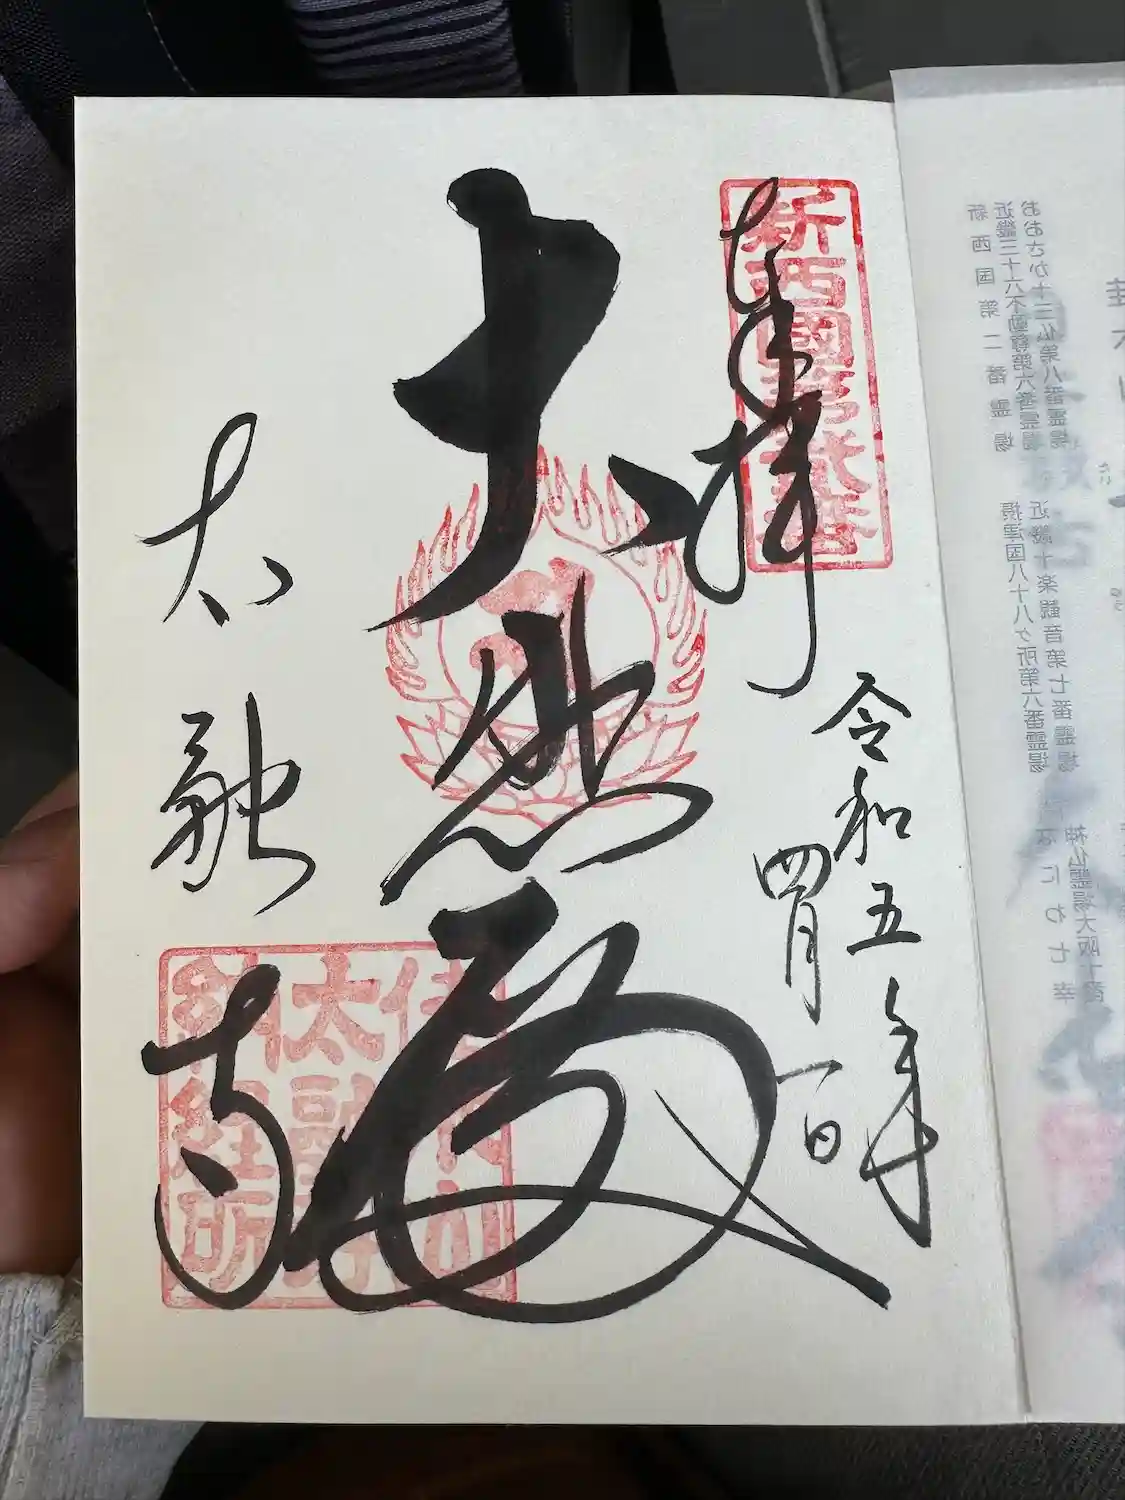 奉拝
新西國第弐番
令和五年
四月一日
大悲殿
太融寺
佳木山
太融寺
納経所
おおさか十三仏第八番霊場
近畿三十六不動尊第六番霊場
新西国第二番霊場
近畿十楽観音第七番霊場
摂津国八十八ヶ所第六番霊場
なにわ七幸
神仏霊場大阪十番